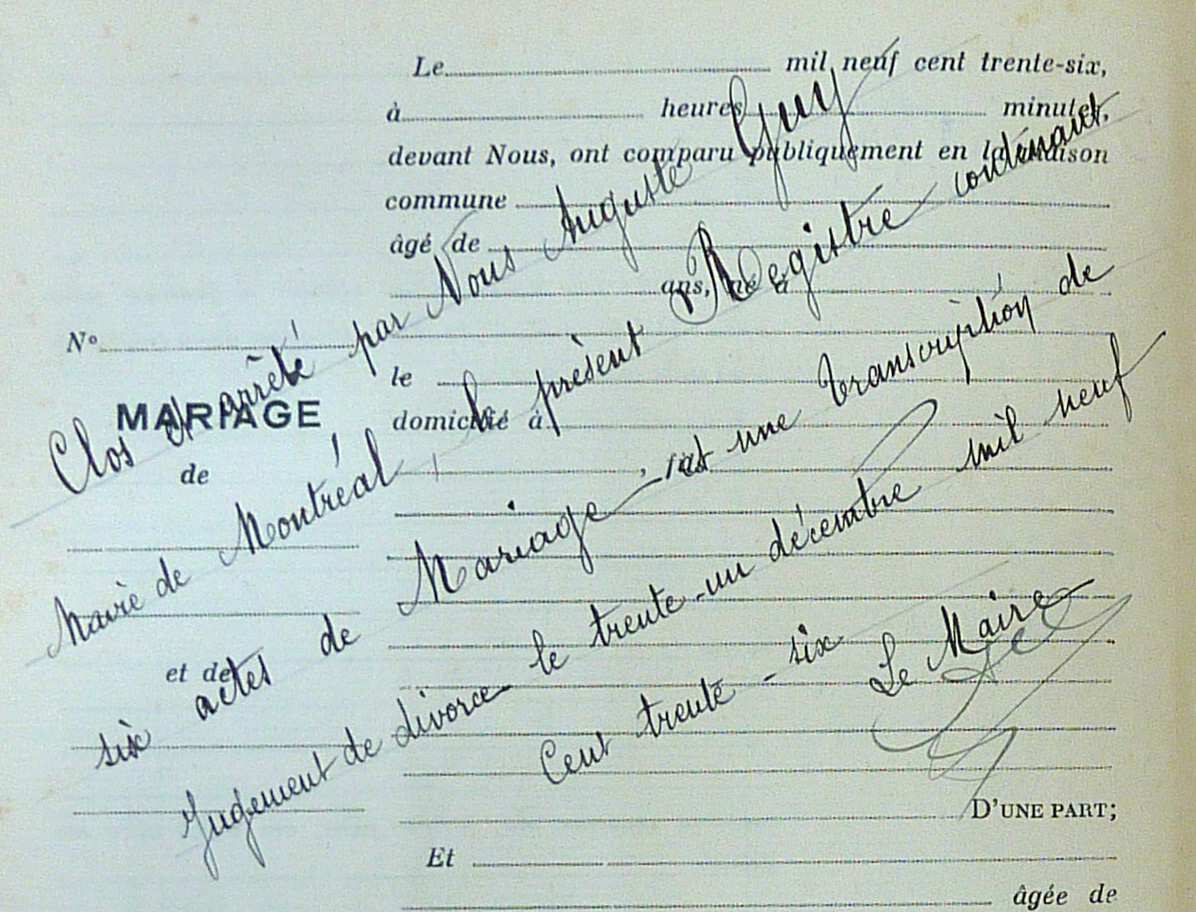 Le mil neuf cent trente-six,
à heures minutes,
devant Nous, ont comparu publiquement en la maison
commune
âgé de
ans, né à
N°
le
MARIAGE
domicilié à
de
et de
D'UNE PART;
Et
âgée de
Clos et arrêté par Nous Auguste Guy
Maire de Montréal, le présent Registre contenant
six actes de Mariage et une transcription de
Jugement de divorce le trente-un décembre mil neuf
Cent trente-six
Le Maire